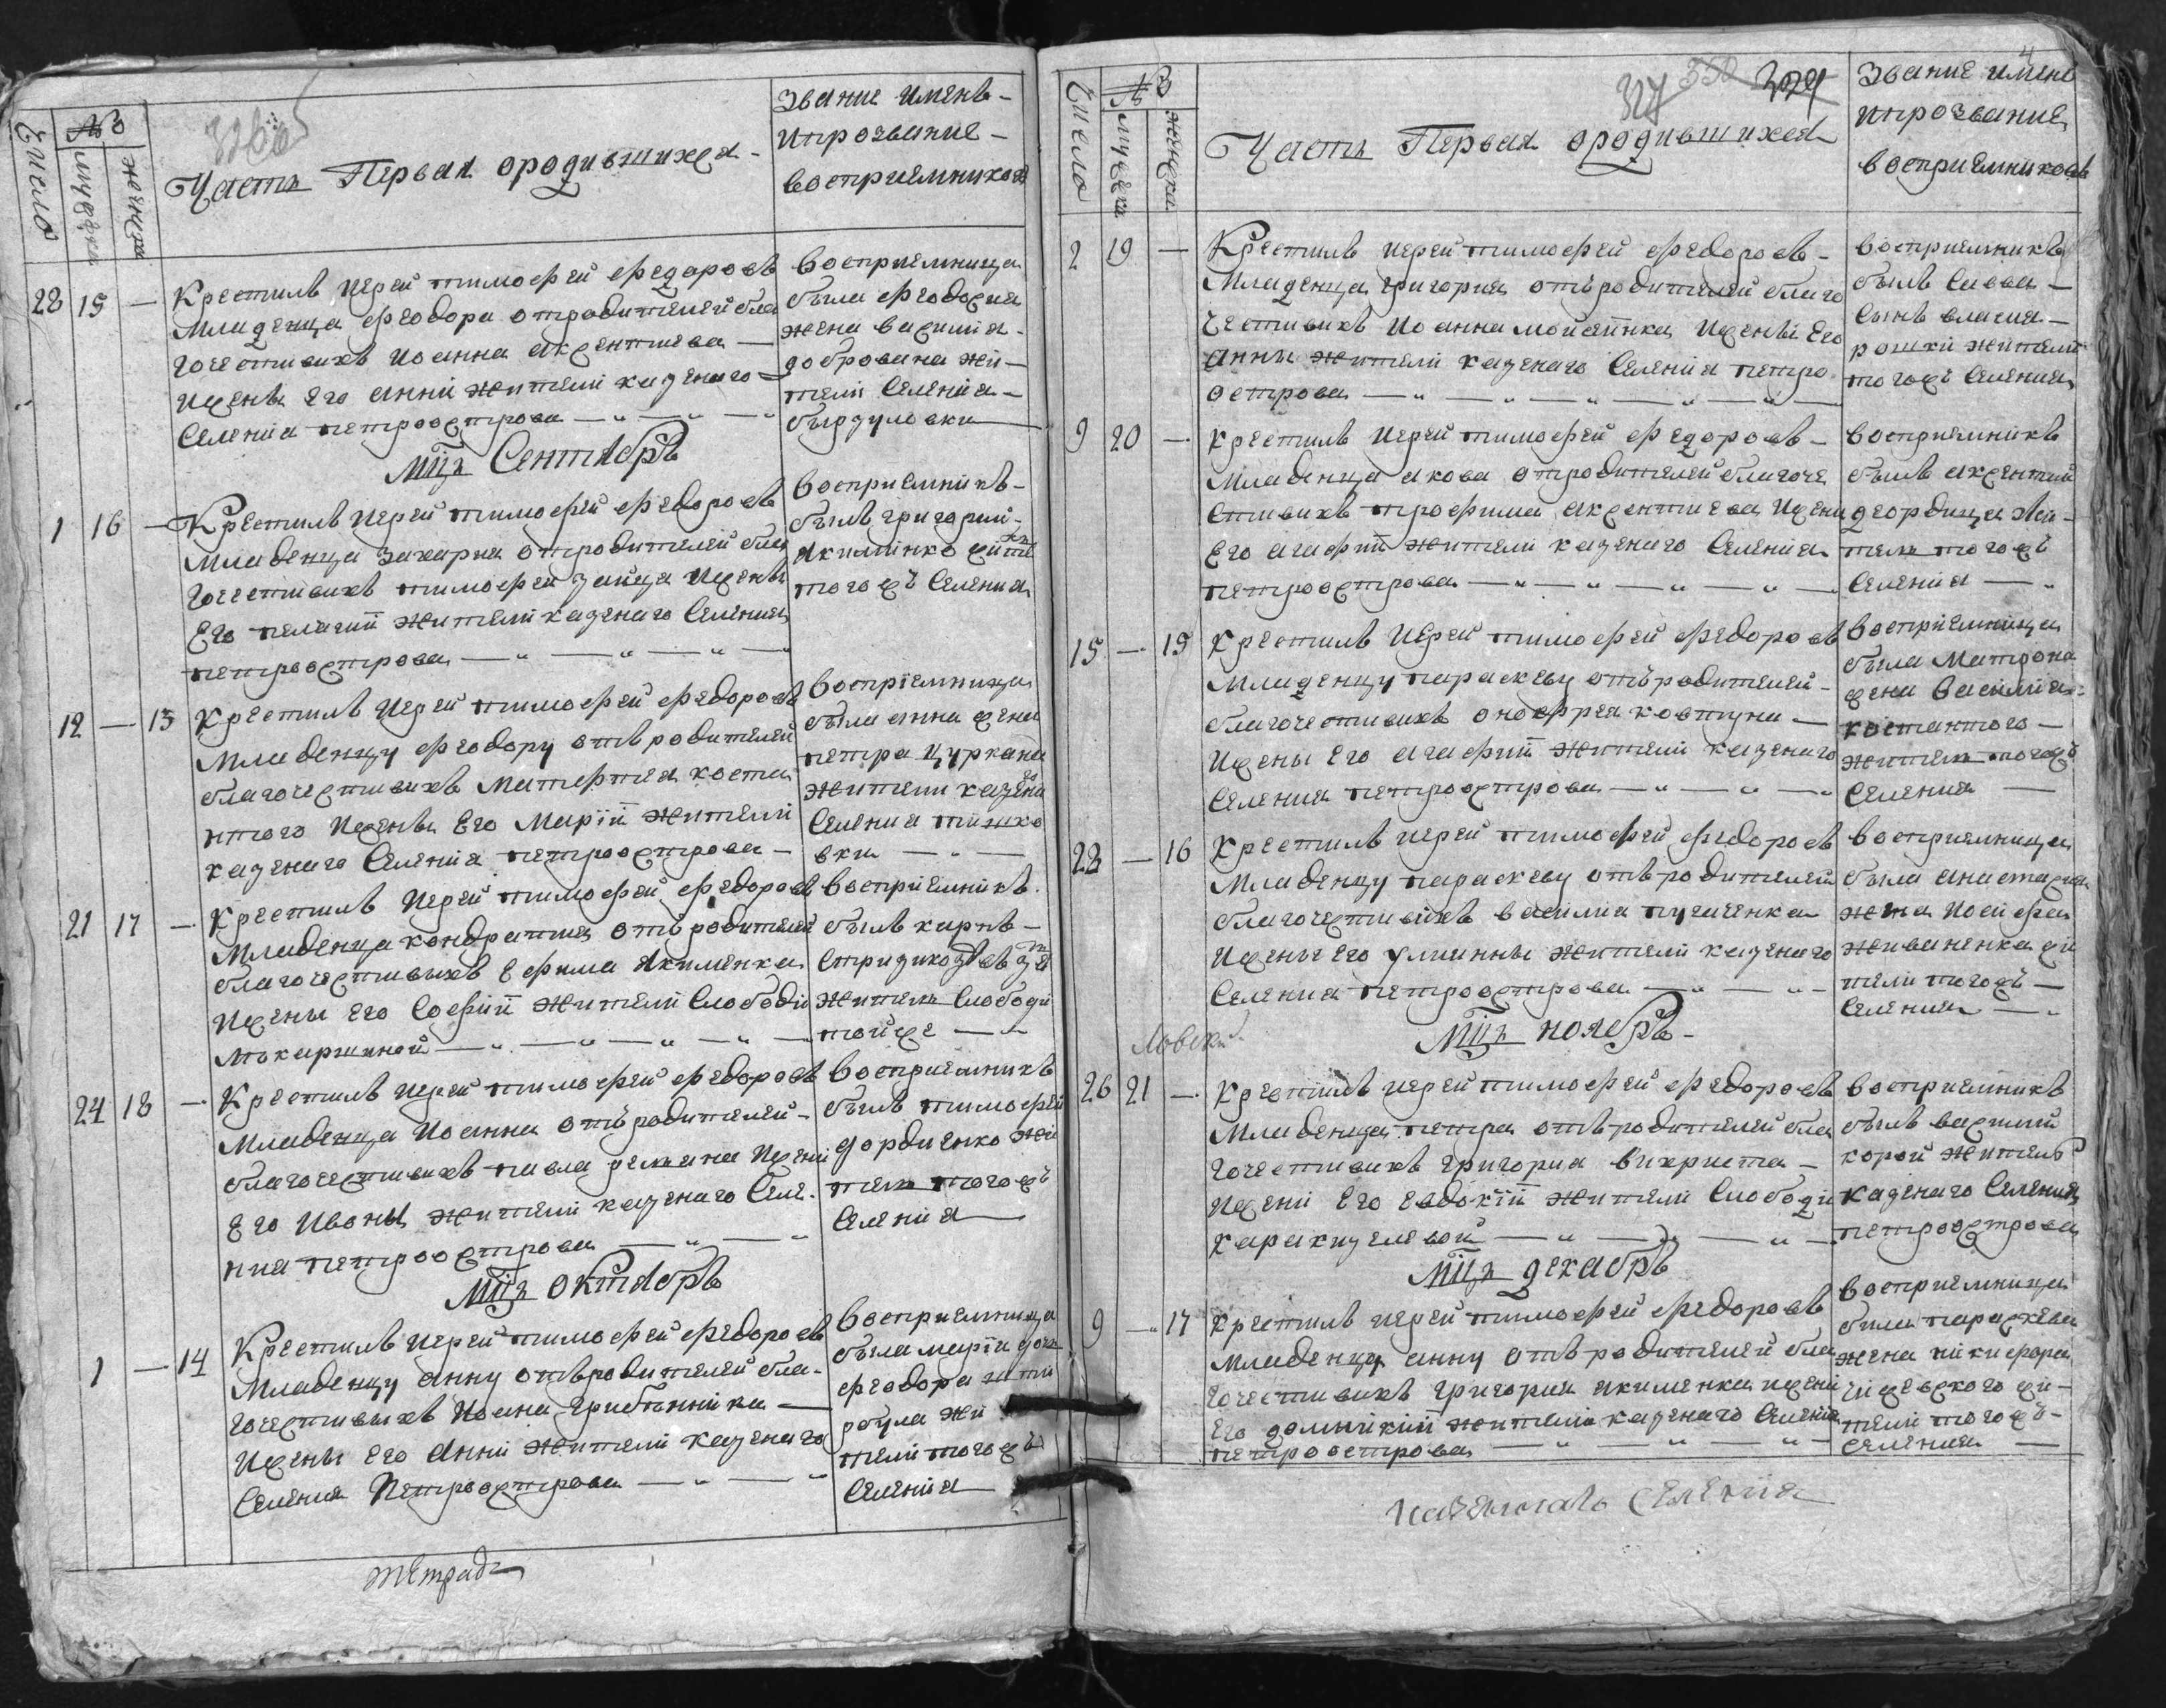 Число
№
мужеска
женска
Часть Первая ородившихся
Звание имень
ипрозвание
восприемниковъ
28 15 —
Крестилъ иерей тимофей федоровъ
Младенца феодора отродителей бла
гочестивихъ иоанна аксентиева
ижены его анни жители казенаго
Селения петроострова
восприемница
была феодосия
жена василия
жи
тели Селения
бырзуловки
мцъ Сентябрь
1 16 —
Крестилъ иерей тимофей федоровъ
Младенца захария отродителей бла
гочестивихъ тимофея зайца ижены
его пелагии жители казенаго Селения
петроострова
восприемникъ
былъ григорий
Якименко жите
тогожъ Селения
12 — 13
Крестилъ иерей тимофей федоровъ
Младенцу феодору отъ родителей
благочестивихъ матефтея коста
нтого ижены его Марiи жители
казенаго Селения петроострова
восприемница
была анна жена
петра цуркана
жители казена
Селения тишко
вки
21 17 —
Крестилъ иерей тимофей федоровъ
Младенца кондратия отъродителей
благочестивыхъ ефима якименка
ижены его Софии жители Слободи
восприемникъ
былъ карпъ
житель Слободи
тойже
24 18 —
Крестилъ иерей тимофей федоровъ
Младенца иоанна отъродителей
благочестивихъ павла ижени
его Ивоны жители казенаго Селе
ния петроострова
восприемникъ
былъ тимофей
дордиенко жи
тель тогожъ
Селения
мцъ октябрь
1 — 14
Крестилъ иерей тимофей федоровъ
Младенцу анну отъродителей бла
гочестивыхъ иоана грибтинника
ижены его Анни жители казенаго
Селения Петроострова
восприемница
была мария дочь
феодора
жи
тели тогожъ
Селения
тетрадь
Число
№
мужеска
женска
327
Часть Первая ородившихся
4
Звание имень
ипрозвание
восприемниковъ
2 19 —
Крестилъ иерей тимофей федоровъ
Младенца григория отъродителей благо
честивихъ иоанна мойсеинка ижены его
анны жители казенаго Селения петро
острова
восприемникъ
былъ Савва
Сынъ власия
рошки жители
тогожъ Селения
9 20 —
крестилъ иерей тимофей федоровъ
Младенца якова отродителей благоче
стивихъ трофима аксентиева ижени
его агафии жители казенаго Селения
петроострова
восприемникъ
былъ аксентий
деордица жи
тель тогожъ
Селения
15 — 15
крестилъ иерей тимофей федоровъ
Младенцу параскеву отъродителей
благочестивихъ онофрея ковтуна
ижены его агафии жители казенаго
Селения петроострова
восприемница
была Матрона
жена василия
костантого
житель тогожъ
Селения
22 — 16
Крестилъ иерей тимофей федоровъ
Младенцу параскеву отъродителей
благочестивихъ василиа пугаченка
ижены его улиянны жители казенаго
Селения петроострова
восприемница
была анастасия
жена иосифа
живаненка жи
тели тогожъ
Селения
мцъ ноябрь
26 21 —
крестилъ иерей тимофей федоровъ
Младенца петра отъродителей бла
гочестивихъ григория вихриста
ижени его евдокии жители Слободи
каракизелевой
восприемникъ
былъ василий
корой житель
казенаго Селения
петроострова
мцъ декабрь
9 — 17
крестилъ иерей тимофей федоровъ
Младенцу анну отъ родителей бла
гочестивихъ григория якименка ижени
его домникии жители казенаго Селения
петроострова
восприемница
била параскева
жена никифора
жи
тели тогожъ
Селения
Селения